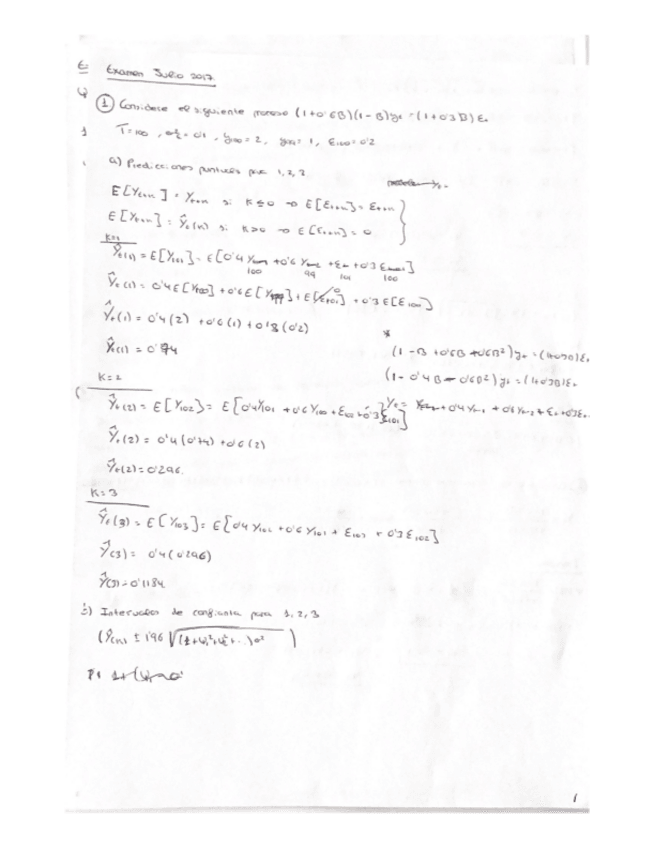 Examen Julio 2017
① Considere el siguiente proceso (1+0'6B)(1-B)yt = (1+0'3B)εt
T=100, σ²=0'1, y100=2, y99=1, ε100=0'2
a) Predicciones puntuales para 1,2,3
E[Yt+k] = Yt+k si k≤0 → E[εt+k] = εt+k
E[Yt+k] = Ŷt(k) si k>0 → E[εt+k] = 0
K=1
Ŷt(1) = E[Y101] = E[0'4 Y100 + 0'6 Y99 + ε101 + 0'3 ε100]
Ŷt(1) = 0'4E[Y100] + 0'6E[Y99] + E[ε101] + 0'3E[ε100]
Ŷt(1) = 0'4(2) + 0'6(1) + 0'3(0'2)
Ŷt(1) = 0'74
*
(1-B+0'6B-0'6B²)yt = (1+0'3B)εt
(1-0'4B-0'6B²)yt = (1+0'3B)εt
K=2
Yt = 0'4Yt-1 + 0'6Yt-2 + εt + 0'3εt-1
Ŷt(2) = E[Y102] = E[0'4Y101 + 0'6Y100 + ε102 + 0'3ε101]
Ŷt(2) = 0'4(0'74) + 0'6(2)
Ŷt(2) = 0'296
K=3
Ŷt(3) = E[Y103] = E[0'4Y102 + 0'6Y101 + ε103 + 0'3ε102]
Ŷ(3) = 0'4(0'296)
Ŷ(3) = 0'1184
b) Intervalos de confianza para 1,2,3
1